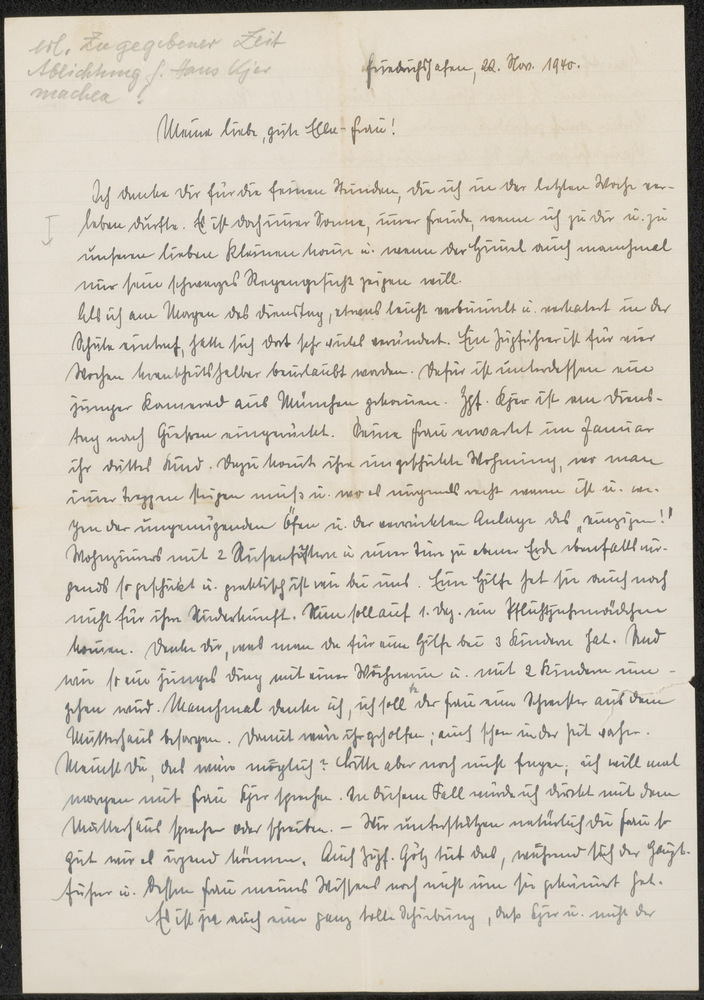 erl. Zu gegebener Zeit
Ablichtung f. Hans Kjer
machen!
Friedrichshafen, 22. Nov. 1940.
Meine liebe, gute Elle-Frau!
Ich danke Dir für die feinen Stunden, die ich in der letzten Woche ver-
leben durfte. Es ist doch immer Sonne, immer Freude, wenn ich zu Dir u. zu
unseren lieben Kleinen komme u. wenn der Himmel auch manchmal
nur sein schwarzes Regengesicht zeigen will.
Als ich am Morgen des Dienstag, etwas leicht verbummelt u. verkatert in der
Schule eintraf, hatte sich dort sehr vieles verändert. Ein Zugführer ist für vier
Wochen krankheitshalber beurlaubt worden. Dafür ist unterdessen ein
junger Kamerad aus München gekommen. Zgf. Kjer ist am Diens-
tag nach Gießen eingerückt. Seine Frau erwartet im Januar
ihr drittes Kind. Dazu kommt ihre ungeschickte Wohnung, wo man
immer Treppen steigen muß u. wo es nirgends recht warm ist u. we-
gen der ungenügenden Öfen u. der verrückten Anlage des "einzigen!!"
Wohnzimmers mit 2 Riesenfenstern u. einer Türe zu ebener Erde ebenfalls nir-
gends so geschickt u. praktisch ist wie bei uns. Eine Hilfe hat sie auch noch
nicht für ihre Niederkunft. Nun soll auf 1. Dez. ein Pflichtjahrmädchen
kommen. Denke Dir, was man da für eine Hilfe bei 3 Kindern hat. Und
wie so ein junges Ding mit einer Wöchnerin u. mit 2 Kindern um-
gehen wird. Manchmal denke ich, ich soll der Frau eine Schwester aus dem
Mutterhaus besorgen. Damit wäre ihr geholfen; auch schon in der Zeit vorher.
Meinst Du, das wäre möglich? Bitte aber noch nicht fragen, ich will mal
morgen mit Frau Kjer sprechen. In diesem Fall würde ich direkt mit dem
Mutterhaus sprechen oder schreiben. – Wir unterstützen natürlich die Frau so
gut wir es irgend können. Auch Zugf. Götz tut das, während sich der Haupt-
führer u. dessen Frau meines Wissens noch nicht um sie gekümmert hat.
Es ist ja auch eine ganz tolle Schiebung, daß Kjer u. nicht der